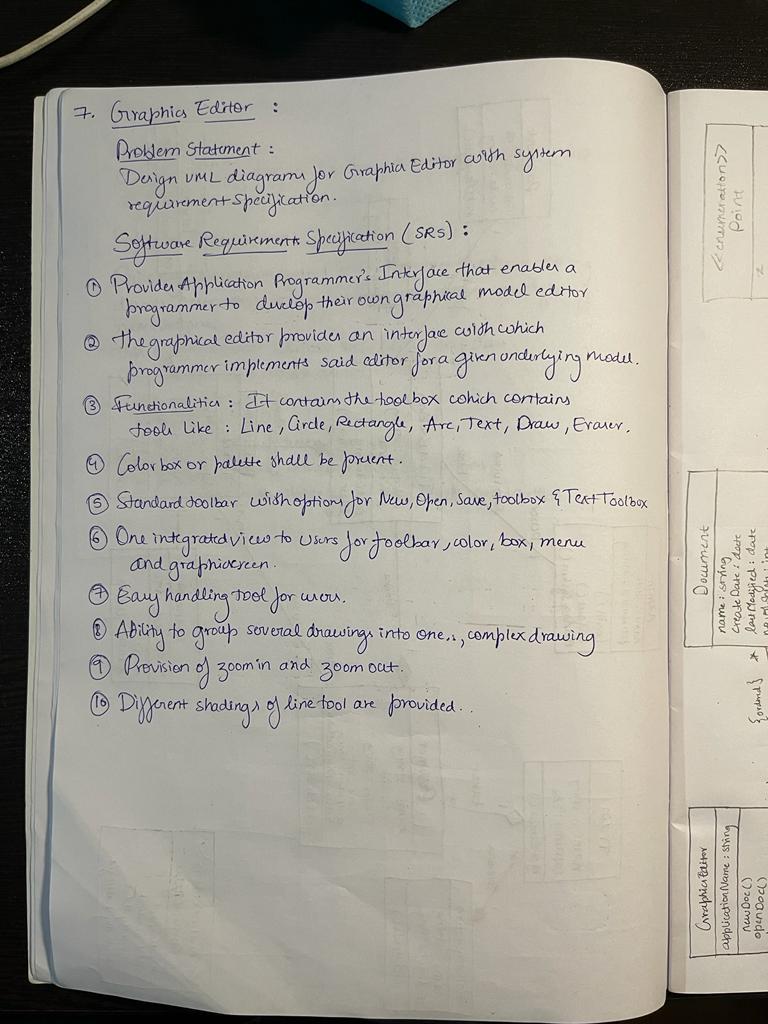 7. Graphics Editor :
Problem Statement :
Design UML diagrams for Graphics Editor with system
requirement Specification.
Software Requirements Specification (SRS) :
① Provides Application Programmer's Interface that enables a
programmer to develop their own graphical model editor
② The graphical editor provides an interface with which
programmer implements said editor for a given underlying model.
③ Functionalities : It contains the toolbox which contains
tools like : Line, Circle, Rectangle, Arc, Text, Draw, Eraser.
④ Color box or palette shall be present.
⑤ Standard toolbar with options for New, Open, Save, toolbox & Text Toolbox
⑥ One integrated view to users for toolbar, color, box, menu
and graphicscreen.
⑦ Easy handling tool for users.
⑧ Ability to group several drawings into one.., complex drawing
⑨ Provision of zoom in and zoom out.
⑩ Different shadings of line tool are provided..
<<enumeration>>
Point
Document
name : string
createDate : date
lastModified : date
{ordered} *
GraphicsEditor
applicationName : string
newDoc()
openDoc()